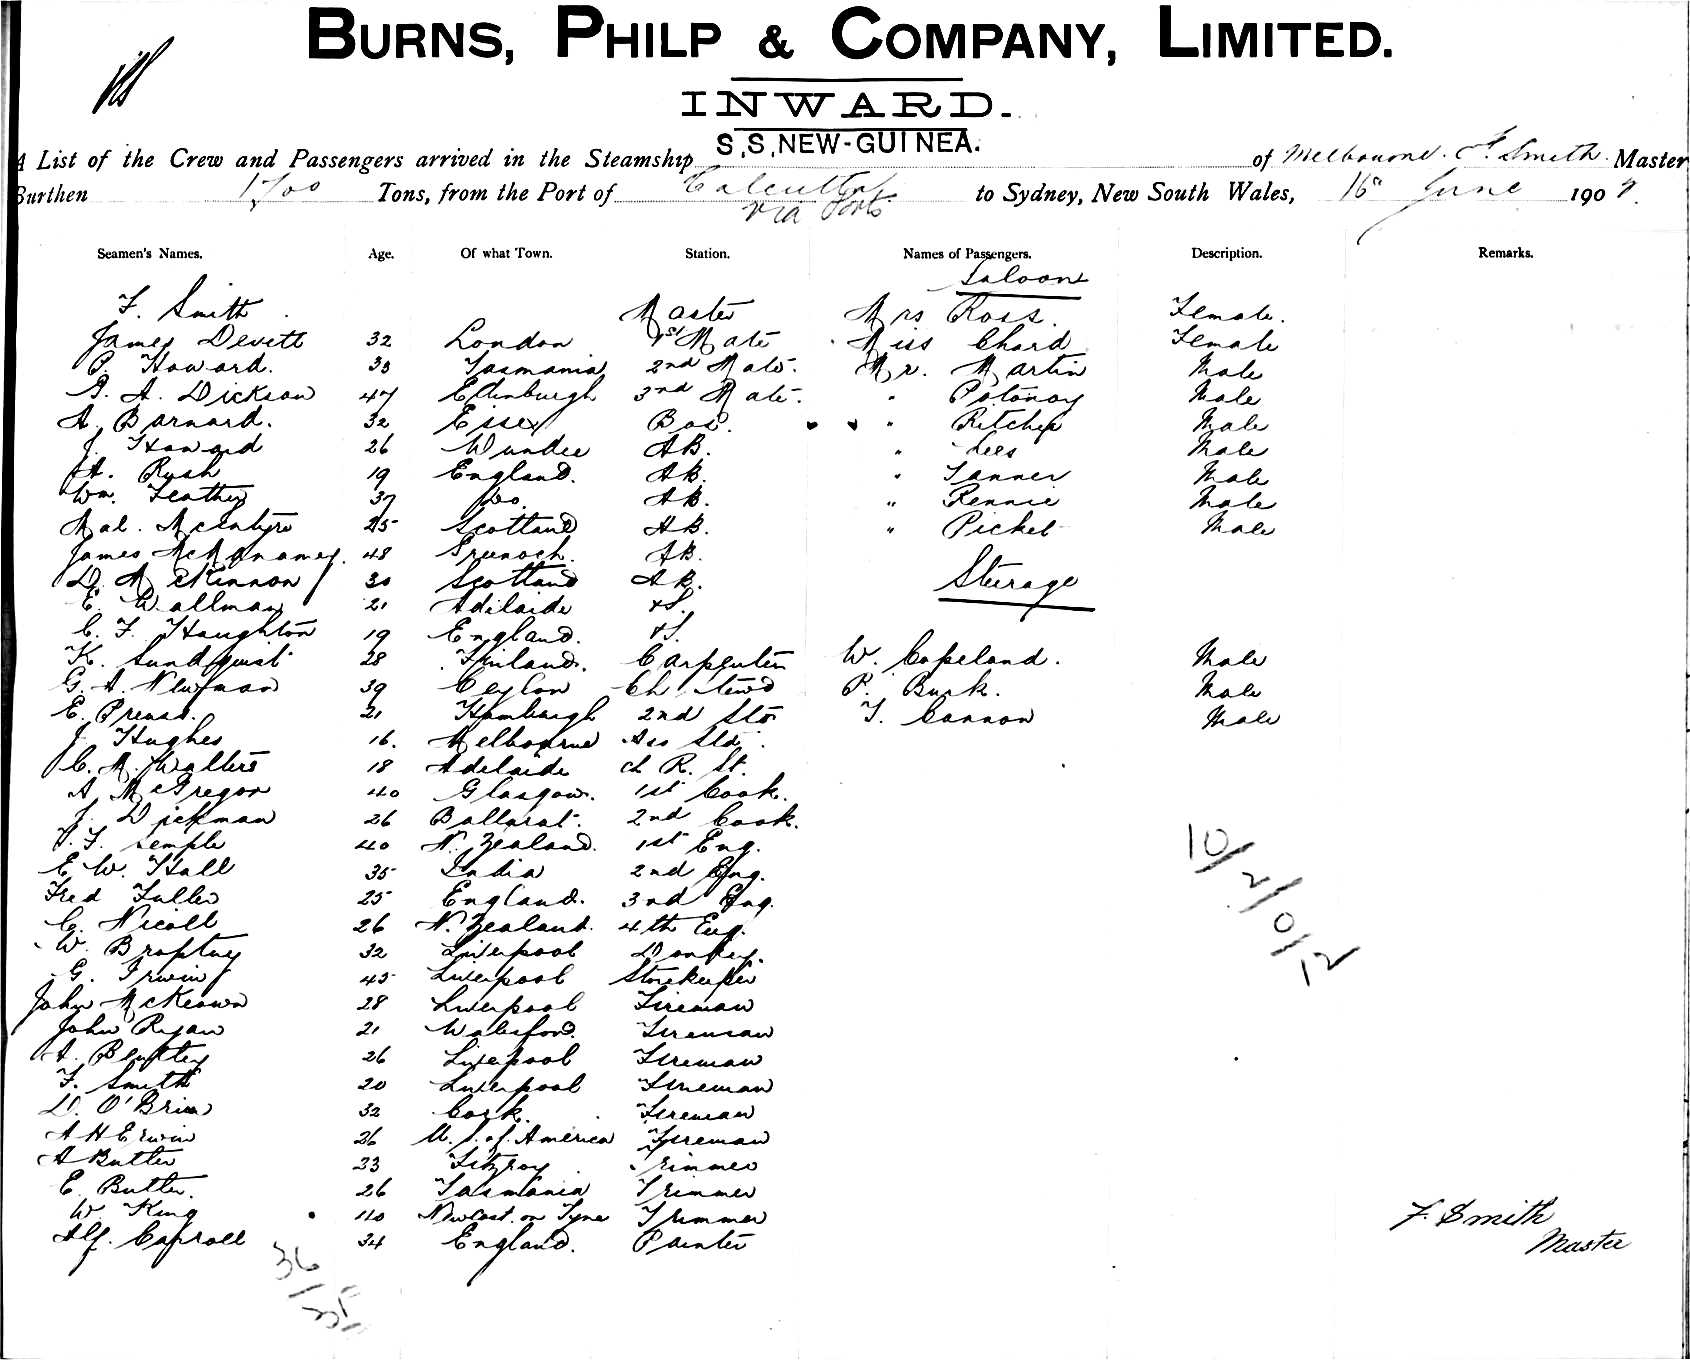 BURNS, PHILP & COMPANY, LIMITED.
INWARD.
S,S,NEW-GUINEA.
A List of the Crew and Passengers arrived in the Steamship of Melbourne. F. Smith. Master
Burthen 1700 Tons, from the Port of Calcutta to Sydney, New South Wales, 16th June 190
via Ports
Seamen's Names. Age. Of what Town. Station. Names of Passengers. Description. Remarks.
Saloon
F. Smith Master Mrs Ross. Female.
James Devett 32 London 1st Mate Miss Chard Female
P. Howard. 33 Tasmania 2nd Mate. Mr. Martin Male
A. Dickson 47 Edinburgh 3rd Mate. " Potonoy Male
A. Barnard. 32 Essex Bos. " Ritchie Male
J. Howard 26 Dundee AB. " Lees Male
A. Rush 19 England. AB. " Tanner Male
Wm. Feathey 37 Do. AB. " Rennie Male
Mal. McIntyre 25 Scotland AB. " Pickel Male
James McManamey. 48 Greenock. AB.
D. McKinnon 30 Scotland AB. Sturage
E. Wallman 21 Adilaide
C. F. Haughton 19 England.
K. Sundquist 28 Finland. Carpenter W. Copeland. Male
G. A. Newman 39 Ceylon Ch Stewd P. Burk. Male
E. 21 Hamburgh 2nd Std T. Cannon Male
J. Hughes 16. Melbourne Ass Std.
C. M. Walters 18 Adelaide ch R. St.
A McGregor 40 Glasgow. 1st Cook.
J. Dickman 26 Ballarat. 2nd Cook.
F. Semple 40 N. Zealand. 1st Eng.
E. W. Hall 35 India 2nd Eng.
Fred Fuller 25 England. 3rd Eng.
C. Nicoll 26 N. Zealand. 4th Eng.
W. Brophey 32 Liverpool Donkey.
G. Irwin 45 Liverpool Storekeeper
John McKeown 28 Liverpool Fireman
John Ryan 21 Fireman
A. Bentley 26 Liverpool Fireman
F. Smith 20 Liverpool Fireman
D. O'Brien 32 Cork. Fireman
A H Erwin 26 U. S. of. America Fireman
A Butler 23 Fitzroy Trimmer
E. Butler. 26 Tasmania Trimmer
W. King 40 Newcast. on Tyne Trimmer
Alf. Carroll 34 England. Painter
10/2/0/12
F. Smith
Master
36/35